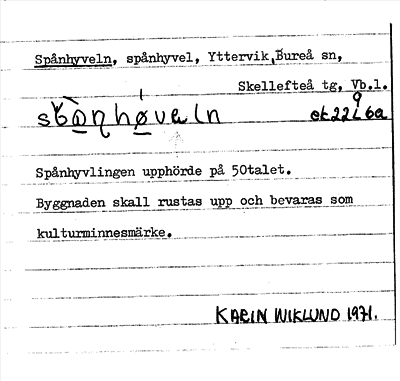 Spånhyveln, spånhyvel, Yttervik, Bureå sn,
Skellefteå tg, Vb.l.
ek 22 6a
Spånhyvlingen upphörde på 50talet.
Byggnaden skall rustas upp och bevaras som
kulturminnesmärke.
KARIN WIKLUND 1971.